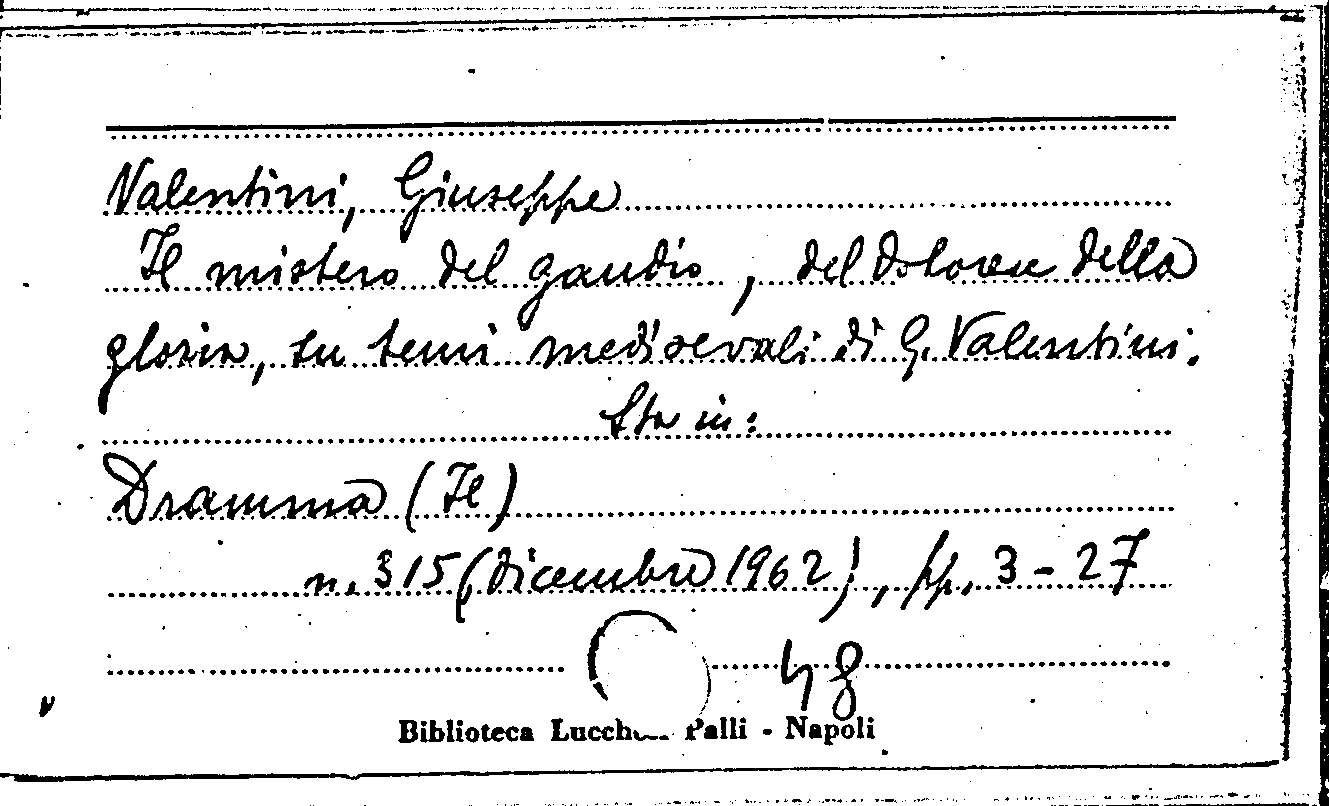 Valentini, Giuseppe
Il mistero del gaudio, del dolore e della
gloria, su temi medioevali di G. Valentini.
Sta in:
Dramma (Il)
n. 315 (dicembre 1962), pp. 3-27
48
Biblioteca Lucchesi Palli - Napoli